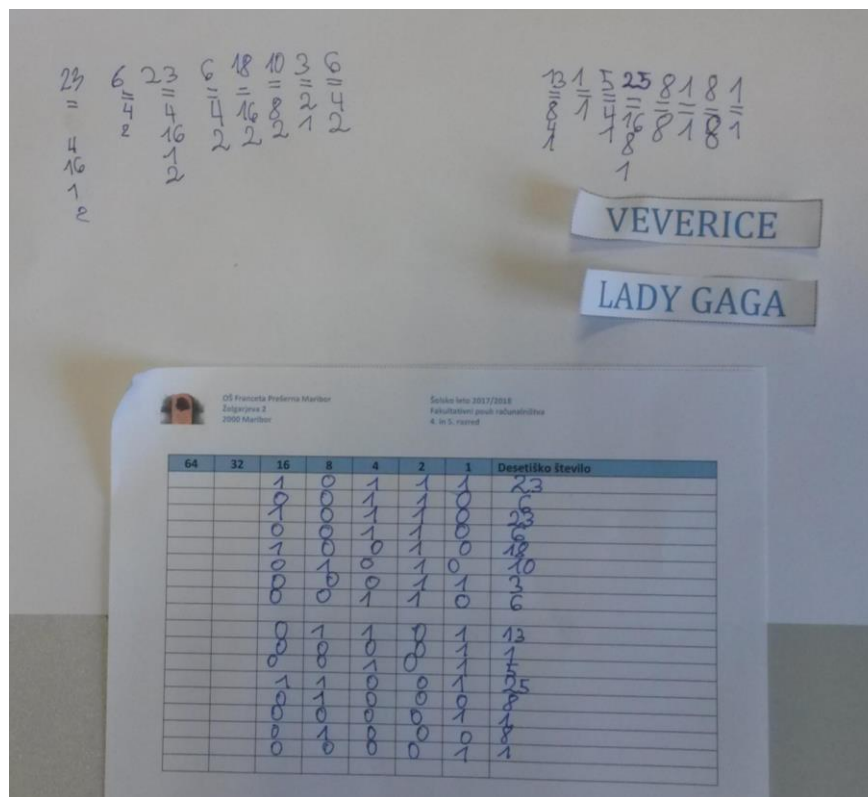 23 6 23 6 18 10 3 6
= = = = = = = =
4 4 4 4 16 8 2 4
16 2 16 2 2 2 1 2
1 1
2 2
13 1 5 25 8 1 8 1
= = = = = = = =
8 1 4 16 8 1 8 1
4 1 8
1 1
VEVERICE
LADY GAGA
OŠ Franceta Prešerna Maribor
Žolgarjeva 2
2000 Maribor
Šolsko leto 2017/2018
Fakultativni pouk računalništva
4. in 5. razred
64 32 16 8 4 2 1 Desetiško število
1 0 1 1 1 23
0 0 1 1 0 6
1 0 1 1 0 23
0 0 1 1 0 6
1 0 0 1 0 18
0 1 0 1 0 10
0 0 0 1 1 3
0 0 1 1 0 6
0 1 1 0 1 13
0 0 0 0 1 1
0 0 1 0 1 5
1 1 0 0 1 25
0 1 0 0 0 8
0 0 0 0 1 1
0 1 0 0 0 8
0 0 0 0 1 1